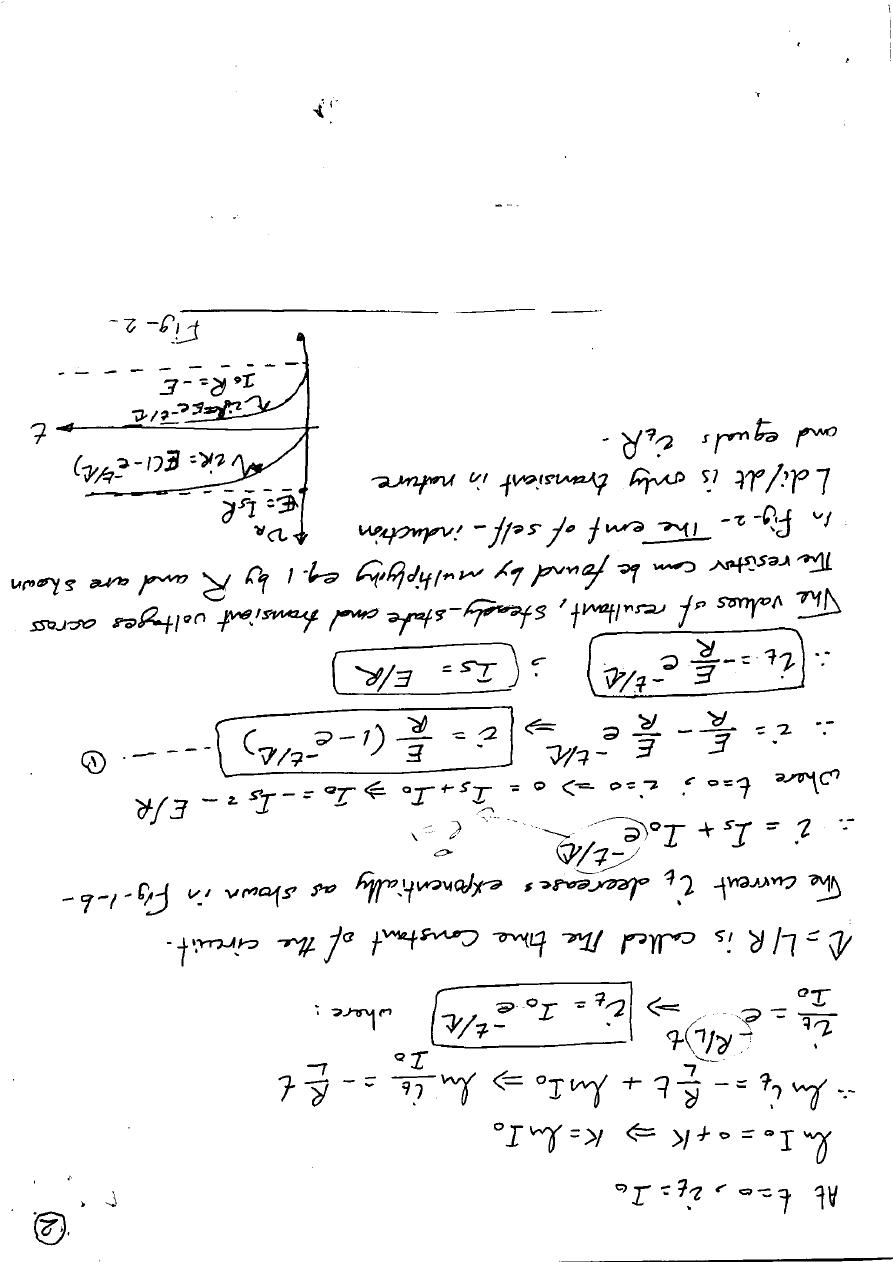 ②
At t=0, i_t = I₀
ln I₀ = 0 + K ⇒ K = ln I₀
∴ ln i_t = - R/L t + ln I₀ ⇒ ln i_t/I₀ = - R/L t
i_t/I₀ = e^(-R/L t) ⇒ i_t = I₀ e^(-t/τ) where :
τ = L/R is called the time constant of the circuit.
The current i_t decreases exponentially as shown in Fig-1-b-
∴ i = Is + I₀ e^(-t/τ)
where t=0 ; i=0 ⇒ 0 = Is + I₀ ⇒ I₀ = - Is = - E/R
∴ i = E/R - E/R e^(-t/τ) ⇒ i = E/R (1 - e^(-t/τ)) ----- ①
∴ i_t = - E/R e^(-t/τ) ; Is = E/R
The values of resultant, steady-state and transient voltages across
the resistor can be found by multiplying eq. 1 by R and are shown
in Fig-2- The emf of self-induction
L di/dt is only transient in nature
and equals i_t R -
v_R
E = IsR
iR = E(1-e^(-t/τ))
t
I₀R = -E
Fig-2-